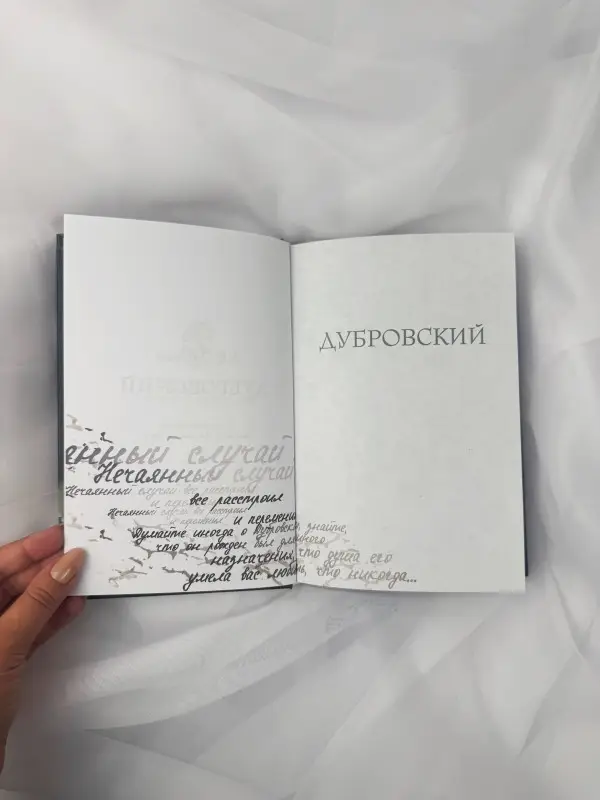 енный случай
Нечаянный случай
Нечаянный случай все расстроил
все расстроил
и переменил
Нечаянный случай все расстроил
и переменил
и перемени
Думайте иногда о Дубровском, знайте,
что он рожден был для иного
назначения, что душа его
умела вас любить, что никогда...
ДУБРОВСКИЙ